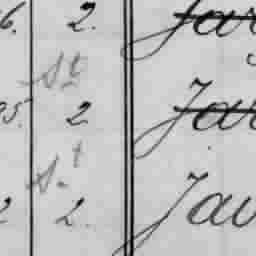 6. 2. Jar
St
95. 2 Jar
St
2 2. Jau